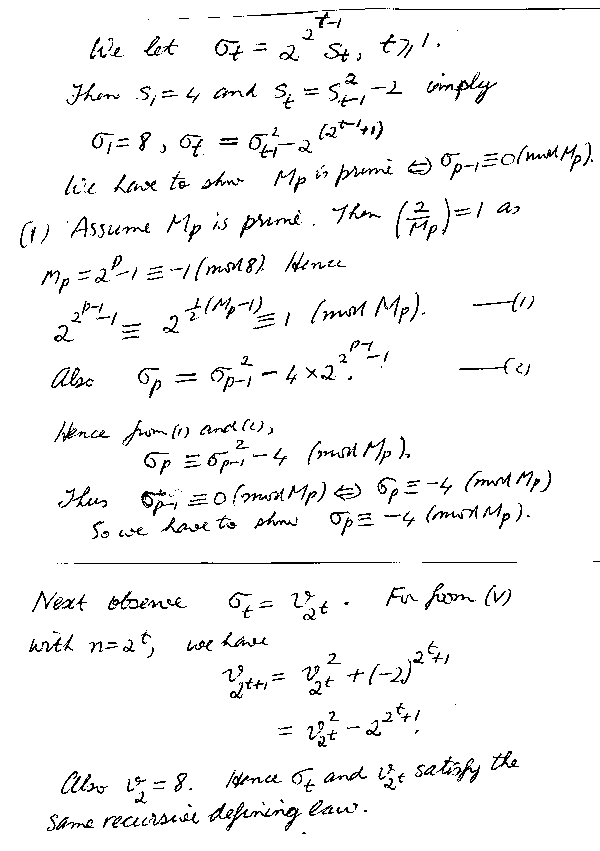 We let σ_t = 2^{2^{t-1}} S_t, t ⩾ 1.
Then S_1 = 4 and S_t = S_{t-1}^2 - 2 imply
σ_1 = 8, σ_t = σ_{t-1}^2 - 2^{(2^{t-1}+1)}
We have to show M_p is prime ⇔ σ_{p-1} ≡ 0 (mod M_p).
(1) Assume M_p is prime. Then (2/M_p) = 1 as
M_p = 2^p - 1 ≡ -1 (mod 8). Hence
2^{2^{p-1}-1} ≡ 2^{½(M_p-1)} ≡ 1 (mod M_p). —(1)
Also σ_p = σ_{p-1}^2 - 4 × 2^{2^{p-1}-1}. —(2)
Hence from (1) and (2),
σ_p ≡ σ_{p-1}^2 - 4 (mod M_p).
Thus σ_{p-1} ≡ 0 (mod M_p) ⇔ σ_p ≡ -4 (mod M_p)
So we have to show σ_p ≡ -4 (mod M_p).
Next observe σ_t = v_{2^t}. For from (v)
with n = 2^t, we have
v_{2^{t+1}} = v_{2^t}^2 + (-2)^{2^t+1}
= v_{2^t}^2 - 2^{2^t+1}.
Also v_2 = 8. Hence σ_t and v_{2^t} satisfy the
same recursive defining law.